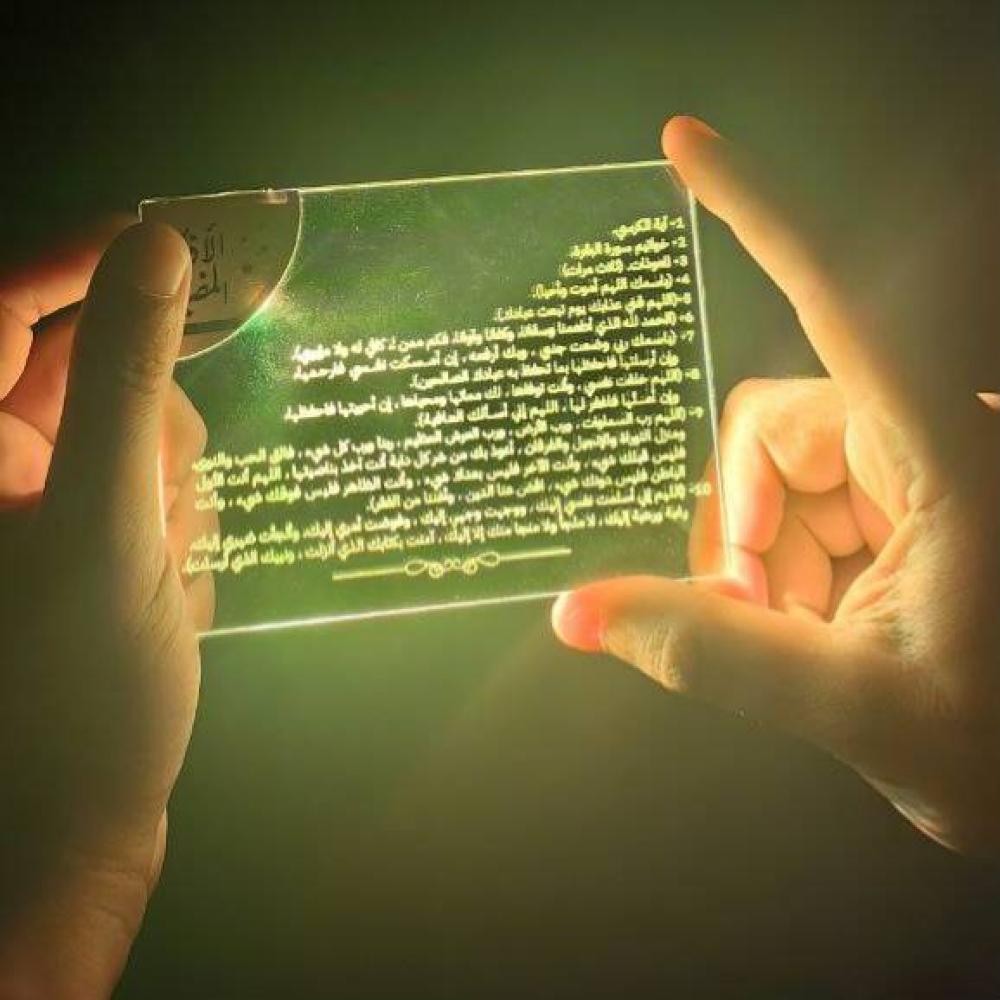 1- آية الكرسي.
2- خواتيم سورة البقرة.
3- المعوذات. (ثلاث مرات)
4- (باسمك اللهم أموت وأحيا).
5- (اللهم قني عذابك يوم تبعث عبادك).
6- (الحمد لله الذي أطعمنا وسقانا، وكفانا وآوانا، فكم ممن لا كافي له ولا مؤوي).
7- (باسمك ربي وضعت جنبي ، وبك أرفعه ، إن أمسكت نفسي فارحمها،
وإن أرسلتها فاحفظها بما تحفظ به عبادك الصالحين).
8- (اللهم خلقت نفسي ، وأنت توفاها ، لك مماتها ومحياها ، إن أحييتها فاحفظها،
وإن أمتها فاغفر لها ، اللهم إني أسألك العافية).
9- (اللهم رب السماوات ، ورب الأرض ، ورب العرش العظيم ، ربنا ورب كل شيء ، فالق الحب والنوى،
ومنزل التوراة والإنجيل والفرقان ، أعوذ بك من شر كل دابة أنت آخذ بناصيتها ، اللهم أنت الأول
فليس قبلك شيء ، وأنت الآخر فليس بعدك شيء ، وأنت الظاهر فليس فوقك شيء ، وأنت
الباطن فليس دونك شيء ، اقض عنا الدين ، وأغننا من الفقر).
10- (اللهم إني أسلمت نفسي إليك ، ووجهت وجهي إليك ، وفوضت أمري إليك، وألجأت ظهري إليك،
رغبة ورهبة إليك، لا ملجأ ولا منجا منك إلا إليك ، آمنت بكتابك الذي أنزلت ، ونبيك الذي أرسلت).